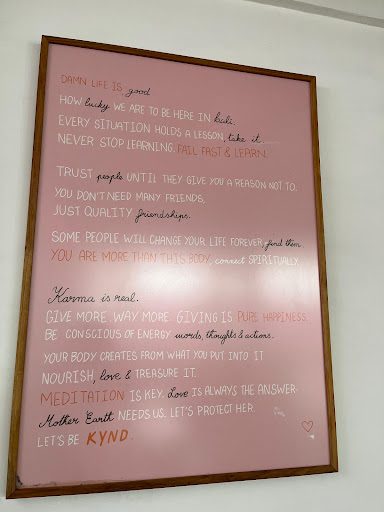 DAMN LIFE IS good
HOW lucky WE ARE TO BE HERE IN bali.
EVERY SITUATION HOLDS A LESSON, take it.
NEVER STOP LEARNING. FAIL FAST & LEARN.
TRUST people UNTIL THEY GIVE YOU A REASON NOT TO.
YOU DON'T NEED MANY FRIENDS,
JUST QUALITY friendships.
SOME PEOPLE WILL CHANGE YOUR LIFE FOREVER find them.
YOU ARE MORE THAN THIS BODY, connect SPIRITUALLY.
Karma is real.
GIVE MORE, WAY MORE. GIVING IS PURE HAPPINESS.
BE CONSCIOUS OF ENERGY words, thoughts & actions.
YOUR BODY CREATES FROM WHAT YOU PUT INTO IT
NOURISH, love & TREASURE IT.
MEDITATION IS KEY. Love IS ALWAYS THE ANSWER.
Mother Earth NEEDS US. LET'S PROTECT HER.
LET'S BE KYND